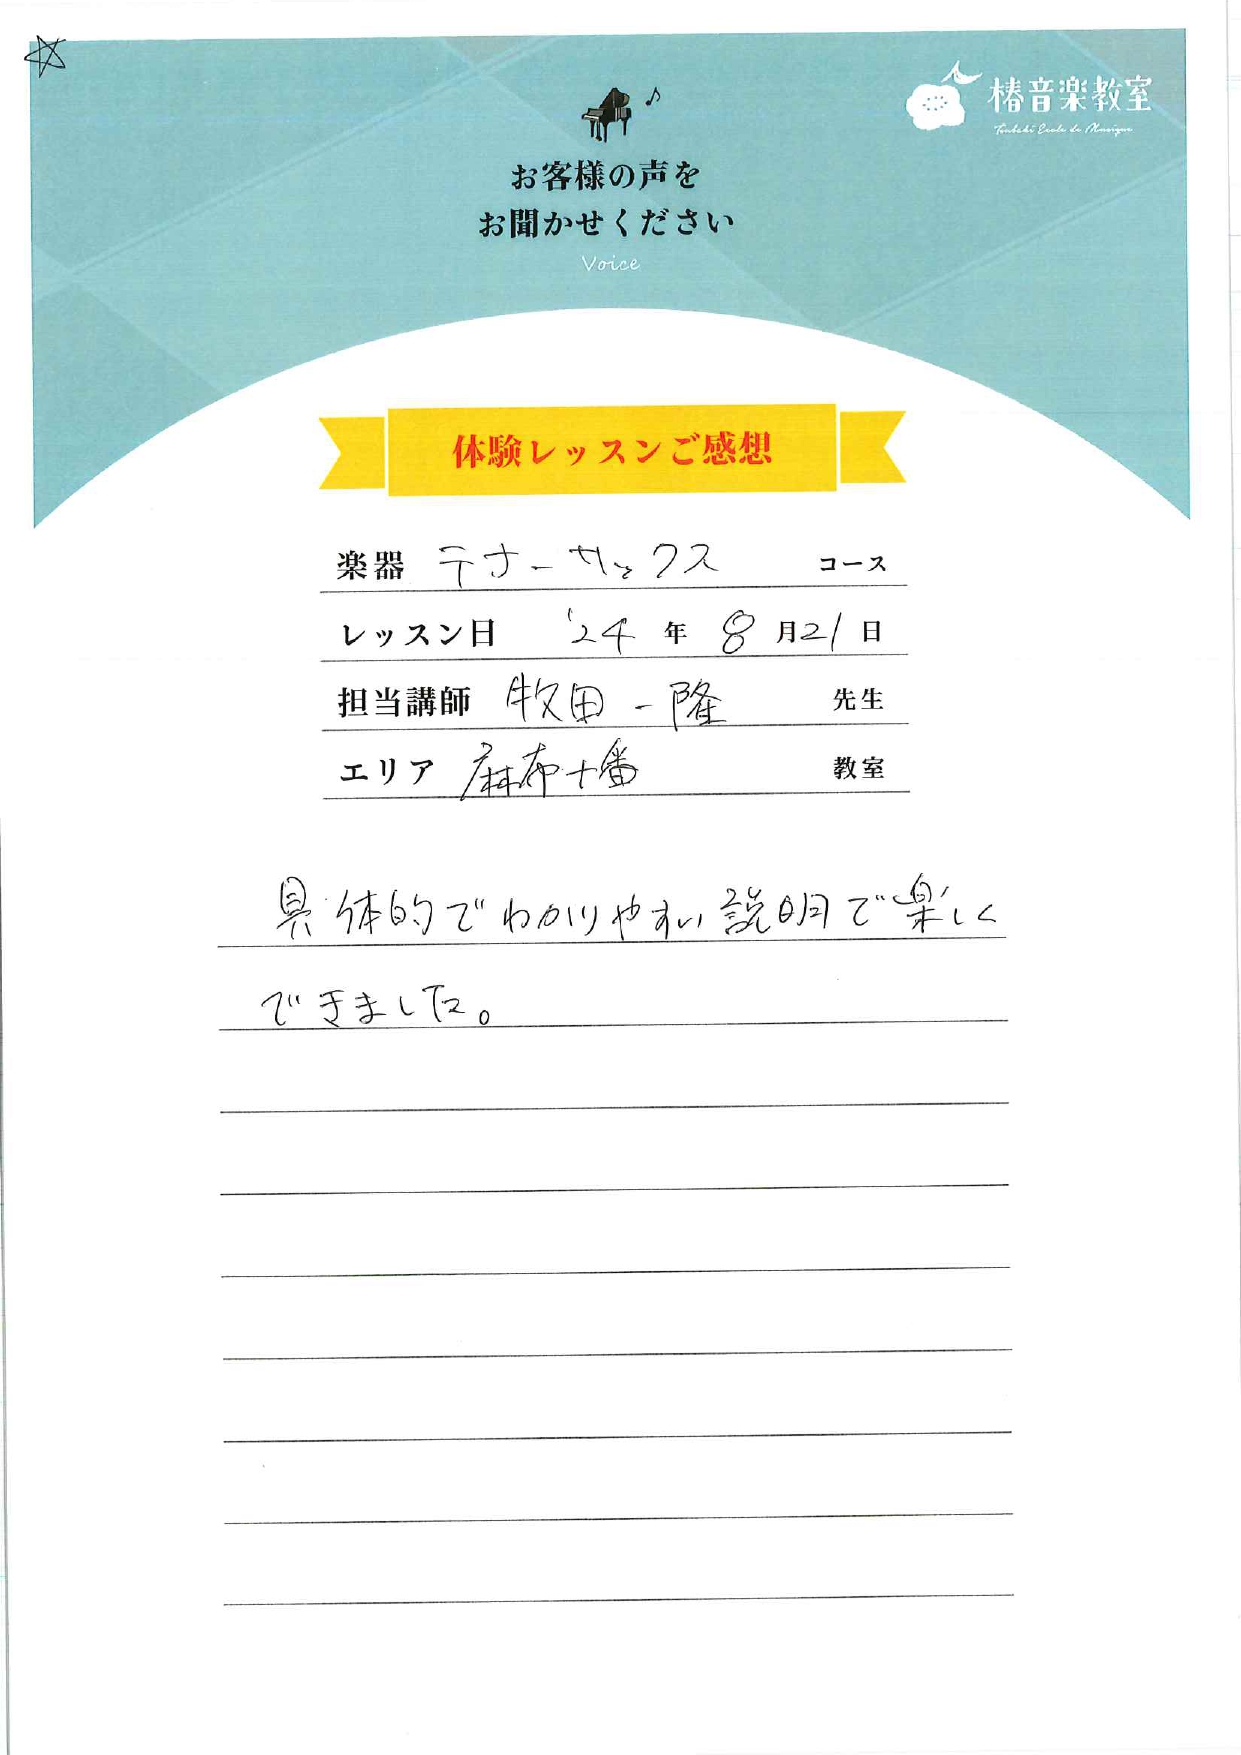 椿音楽教室
Tsubaki Ecole de Musique
お客様の声を
お聞かせください
Voice
体験レッスンご感想
楽器 テナーサックス コース
レッスン日 '24 年 8 月 21 日
担当講師 牧田一隆 先生
エリア 麻布十番 教室
具体的でわかりやすい説明で楽しく
できました。